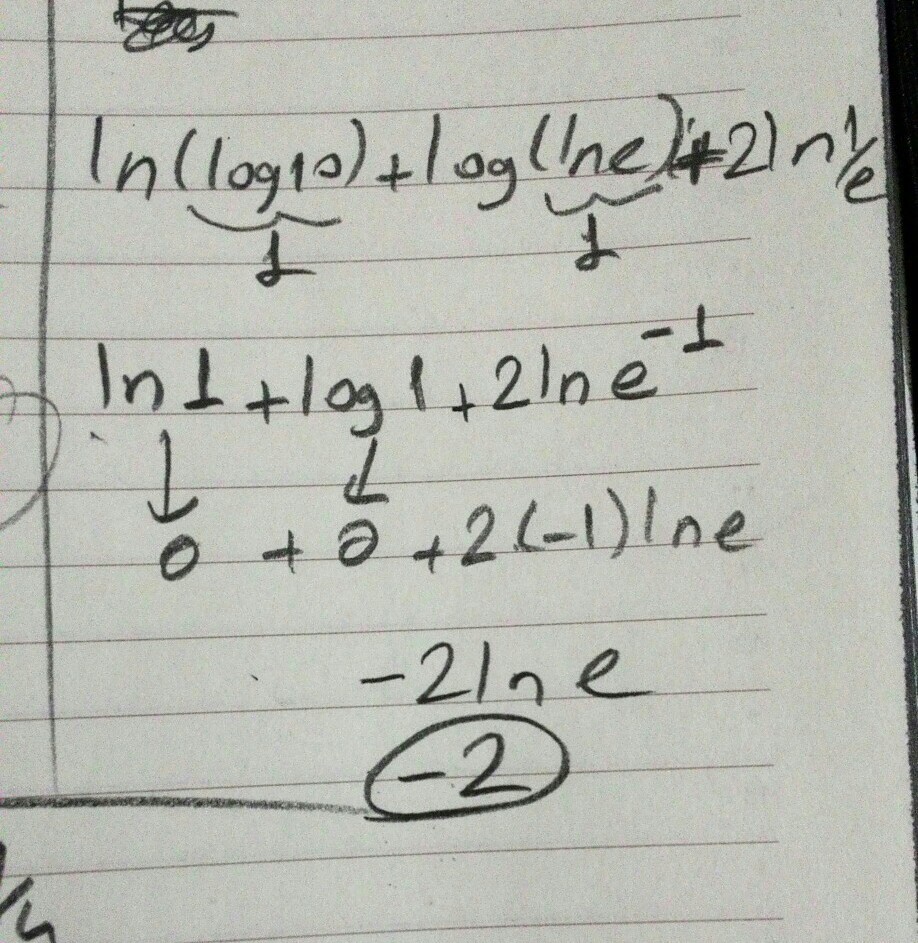 ln(log10)+log(lne)+2ln1/e
1 1
ln1+log1+2lne⁻¹
↓ ↓
0 + 0 +2(-1)lne
-2lne
-2